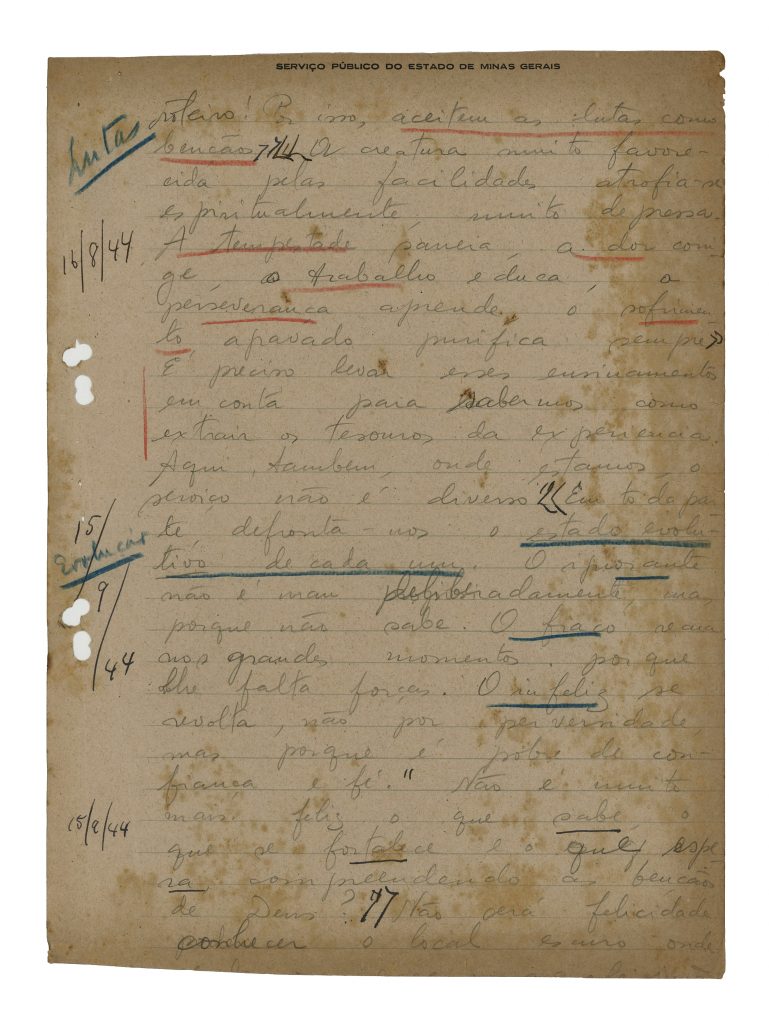 SERVIÇO PÚBLICO DO ESTADO DE MINAS GERAIS
roteiro! Por isso, aceitem as lutas como
Lutas
bençãos. A creatura muito favore-
cida pelas facilidades atrofia-se
espiritualmente, muito depressa.
16/8/44
A tempestade saneia, a dor corri-
ge, o trabalho educa, a
perseverança aprende, o sofrimen-
to apurado purifica sempre"
É preciso levar esses ensinamentos
em conta para sabermos como
extrair os tesouros da experiencia.
Aqui, tambem, onde estamos, o
serviço não é diverso. "Em toda par-
15/9/44
te, defronta-nos o estado evolu-
Evolução
tivo de cada um. O ignorante
não é mau deliberadamente, mas,
porque não sabe. O fraco recua
nos grandes momentos, porque
lhe falta forças. O infeliz se
revolta, não por perversidade,
mas porque é pobre de con-
fiança e fé." Não é muito
15/9/44
mais feliz o que sabe, o
que se fortalece e o que espe-
ra compreendendo as bençãos
de Deus? Não será felicidade
conhecer o local escuro onde